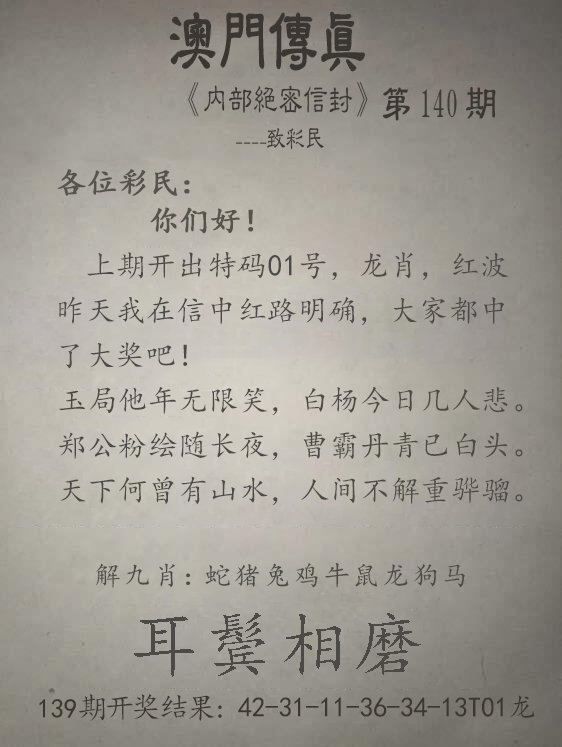 澳門傳真
《内部絕密信封》第140期
----致彩民
各位彩民：
你们好！
上期开出特码01号，龙肖，红波
昨天我在信中红路明确，大家都中
了大奖吧！
玉局他年无限笑，白杨今日几人悲。
郑公粉绘随长夜，曹霸丹青已白头。
天下何曾有山水，人间不解重骅骝。
解九肖：蛇猪兔鸡牛鼠龙狗马
耳鬓相磨
139期开奖结果：42-31-11-36-34-13T01龙